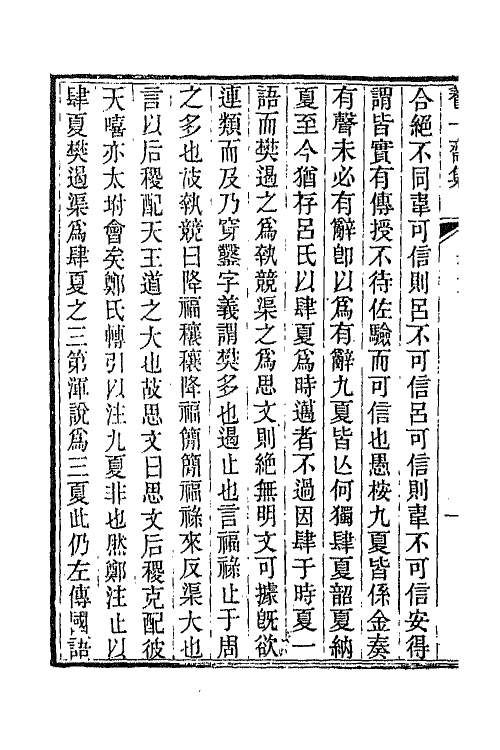 合絕不同韋可信則呂不可信呂可信則韋不可信安得
謂皆實有傳授不待佐驗而可信也愚桉九夏皆係金奏
有聲未必有辭卽以爲有辭九夏皆亾何獨肆夏韶夏納
夏至今猶存呂氏以肆夏爲時邁者不過因肆于時夏一
語而樊遏之爲執競渠之爲思文則絕無明文可據旣欲
連類而及乃穿鑿字義謂樊多也遏止也言福祿止于周
之多也故執競曰降福穰穰降福簡簡福祿來反渠大也
言以后稷配天王道之大也故思文曰思文后稷克配彼
天嘻亦太坿會矣鄭氏轉引以注九夏非也然鄭注止以
肆夏樊遏渠爲肆夏之三第渾說爲三夏此仍左傳國語